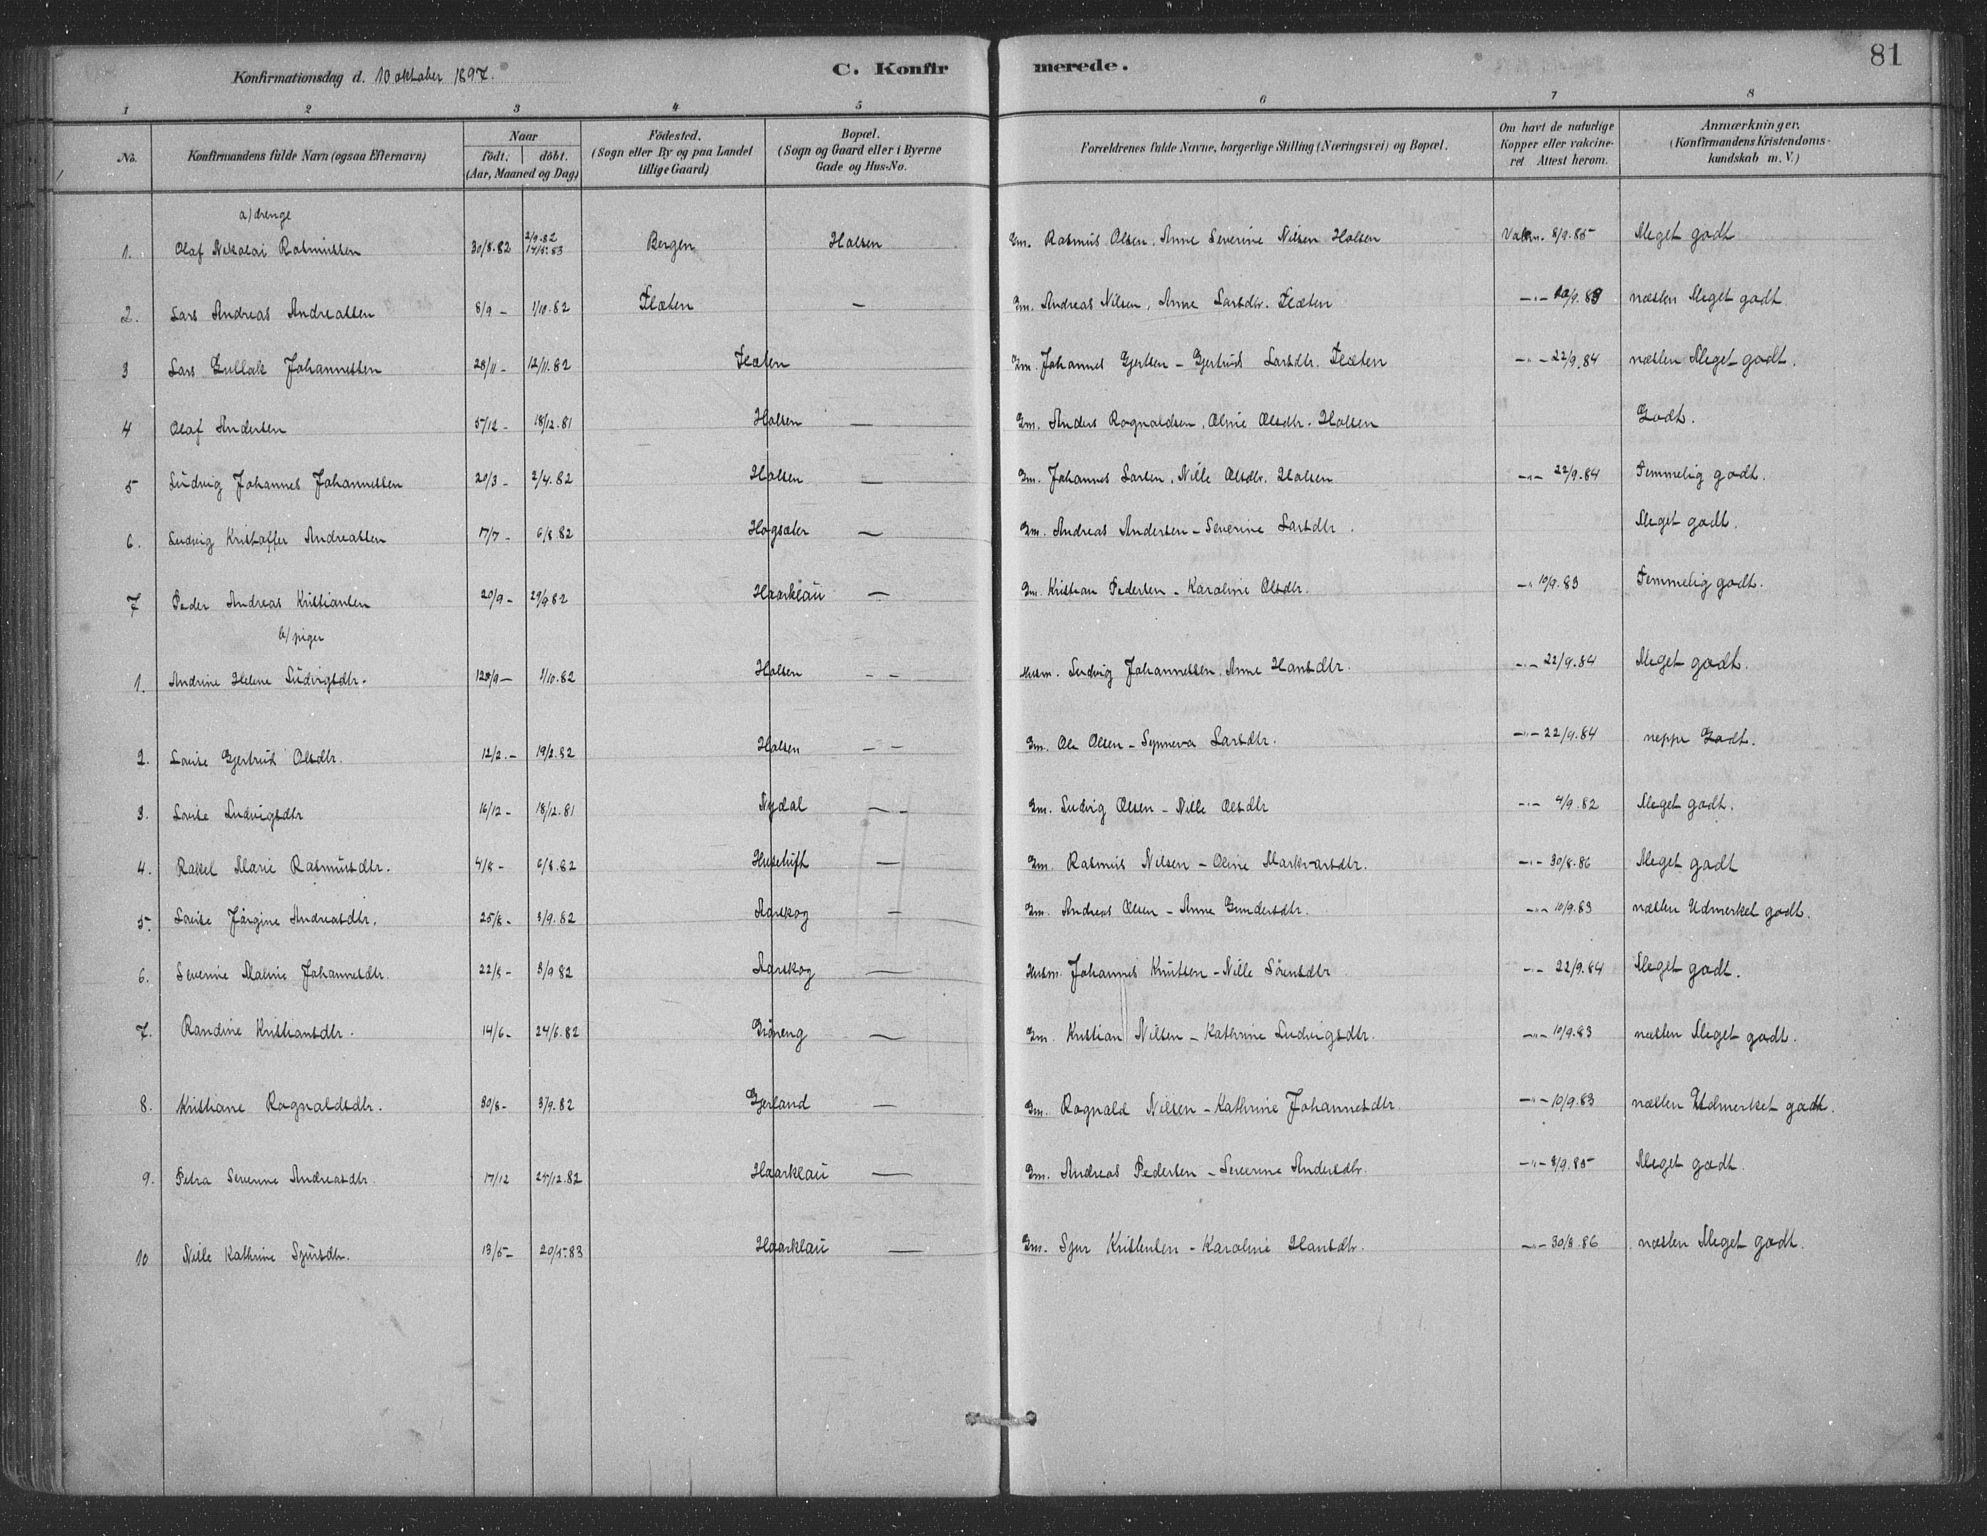 Konfirmationsdag d. 10 oktober 1897. C. Konfirmerede. 81
1 2 3 4 5 6 7 8
No. Konfirmandens fulde Navn (ogsaa Efternavn) Naar födt. döbt. (Aar, Maaned og Dag) Födested. (Sogn eller By og paa Landet tillige Gaard) Bopæl. (Sogn og Gaard eller i Byerne Gade og Hus-No. Forældrenes fulde Navne, borgerlige Stilling (Næringsvei) og Bopæl. Om havt de naturlige Kopper eller vakcineret Attest herom. Anmærkninger. (Konfirmandens Kristendomskundskab m. V.)
a) drenge
1. Olaf Nikolai Rasmussen 30/8.82 2/9.82 14/5.83 Bergen Holsen Gm. Rasmus Olsen, Anne Severine Nilsen Holsen Vakn. 8/9.85 Meget godt
2. Lars Andreas Andreassen 8/9 - 1/10.82 Flæten — Gm. Andreas Nilsen, Anne Larsdtr. Flæten -"- 10/9.83 næsten Meget godt
3 Lars Gullak Johannessen 28/11 - 12/11.82 Flæten Gm. Johannes Gjertsen - Gjertrud Larsdtr. Flæten -"- 22/9.84 næsten Meget godt.
4 Olaf Andersen 5/12 - 18/12.81 Holsen — Gm. Anders Rognaldsen, Oline Olsdtr. Holsen Godt.
5 Ludvig Johannes Johannessen 20/3 - 2/4.82 Holsen — Gm. Johannes Larsen, Nille Olsdtr. Holsen -"- 22/9.84 Temmelig godt.
6. Ludvig Kristoffer Andreassen 17/7 - 6/8.82 Hogsæter — Gm. Andreas Andersen - Severine Larsdtr. Meget godt.
7 Peder Andreas Kristiansen 20/9 - 29/9 82 Haarklau — Gm. Kristian Pedersen - Karoline Olsdtr. -" 10/9.83 Temmelig godt.
b/ piger
1. Andrine Helene Ludvigsdtr. 1/10.82 Holsen - - Husm. Ludvig Johannessen, Anne Hansdtr. -"- 22/9.84 Meget godt.
2. Lovise Gjertrud Olsdtr. 12/2.- 19/2.82 Holsen — — Gm. Ole Olsen - Synneva Larsdtr. -"- 22/9.84 neppe Godt.
3. Lovise Ludvigsdtr 16/12 - 18/12.81 Nydal — - Gm. Ludvig Olsen - Nille Olsdtr -"- 4/9.82 Meget godt.
4. Rakel Marie Rasmusdtr. 4/8 - 6/8.82 Husetuft — Gm. Rasmus Nilsen - Oline Markvardsdtr. -"- 30/8.86 Meget godt
5. Lovise Jørgine Andreasdtr. 25/8 - 3/9.82 Aarskog — Gm. Andreas Olsen - Anne Gundersdtr. -"- 10/9.83 næsten Udmerket godt.
6. Severine Malene Johannesdtr. 22/8 - 3/9 82 Aarskog — Husm. Johannes Knutsen - Nille Sørensdtr -"- 22/9.84 Meget godt.
7. Randine Kristiansdtr. 14/6 - 24/6.82 Grøneng — Gm. Kristian Nilsen - Kathrine Ludvigsdtr. -"- 10/9.83 næsten Meget godt.
8. Kristiane Rognaldsdtr. 30/8 - 3/9.82 Gjerland — Gm. Rognald Nilsen - Kathrine Johannesdtr. -"- 10/9.83 næsten Udmerket godt.
9. Petra Severine Andreasdtr 17/12 24/12.82 Haarklau — Gm. Andreas Pedersen - Severine Andersdtr. -"- 8/9.85 Meget godt.
10 Nille Kathrine Sjursdtr. 13/5 - 20/5.83 Haarklau — Gm. Sjur Kristensen - Karoline Hansdtr. -"- 30/8.86 næsten Meget godt.